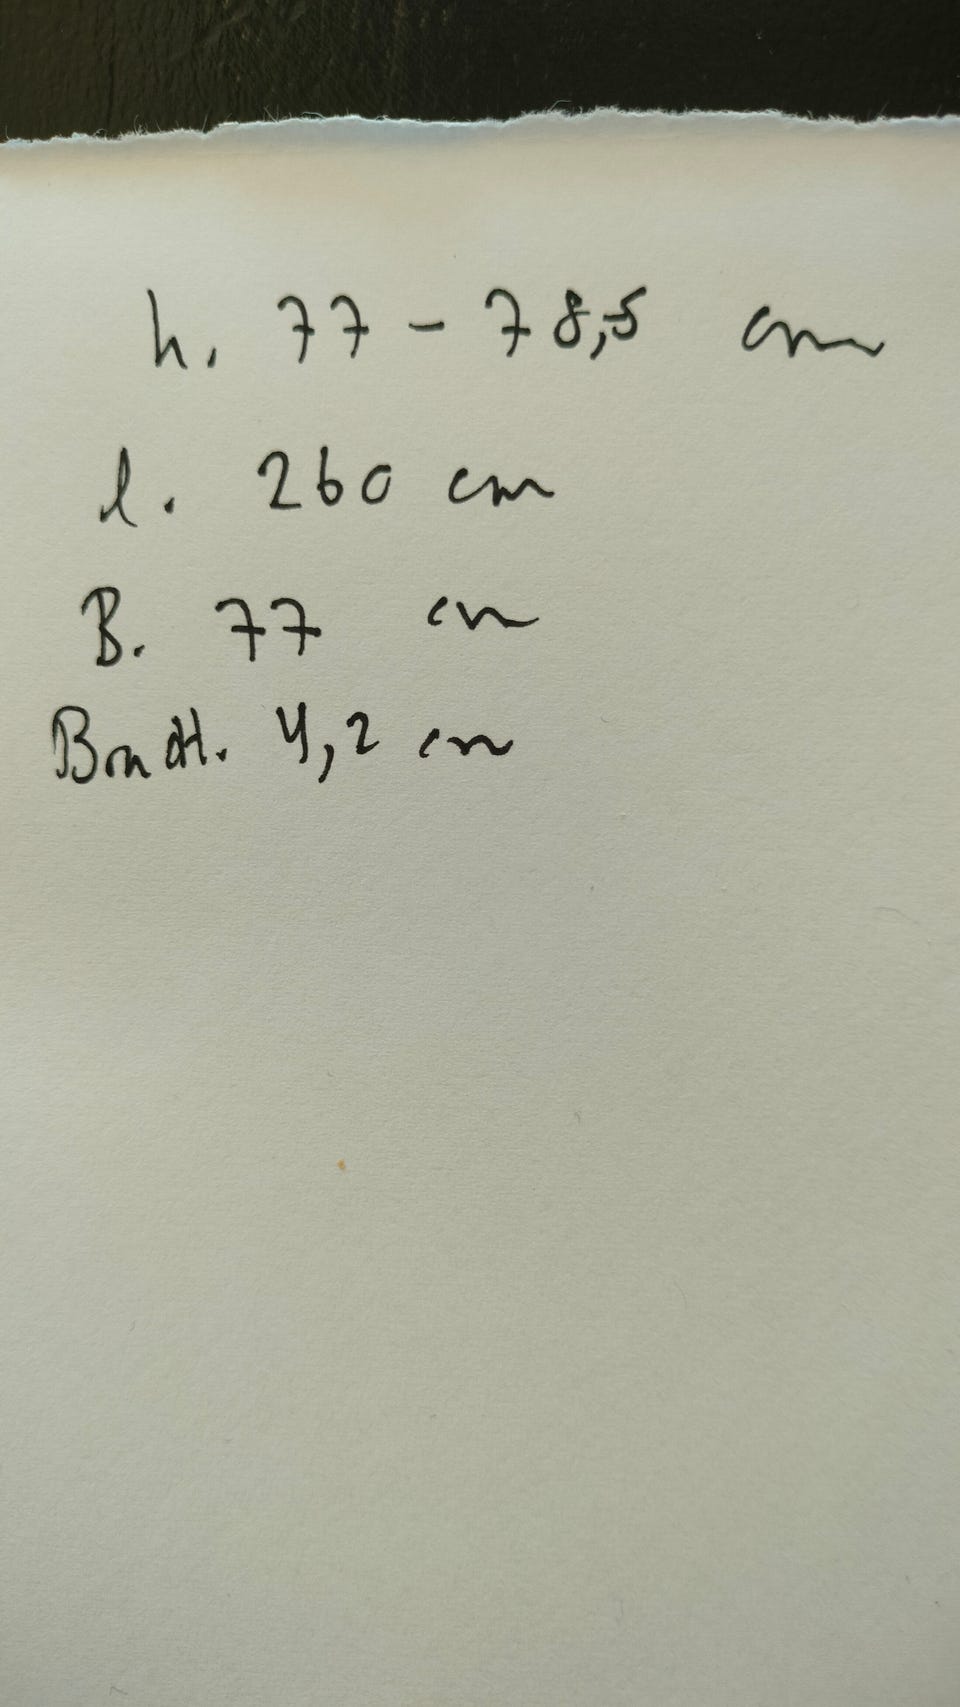 h. 77 - 78,5 cm
l. 260 cm
B. 77 cm
4,2 cm